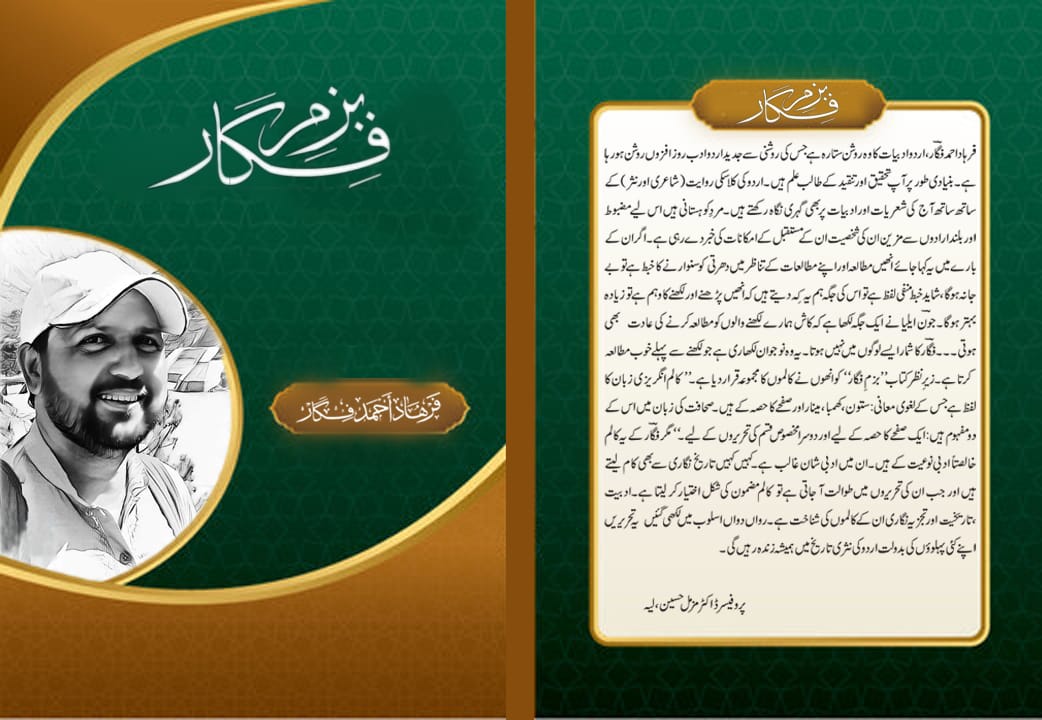 بزمِ فگار
فرہاد احمد فگار
بزمِ فگار
فرہاد احمد فگارؔ، اردو ادبیات کا وہ روشن ستارہ ہے جس کی روشنی سے جدید اردو ادب روز افزوں روشن ہو رہا
ہے۔ بنیادی طور پر آپ تحقیق اور تنقید کے طالب علم ہیں۔ اردو کی کلاسکی روایت (شاعری اور نثر) کے
ساتھ ساتھ آج کی شعریات اور ادبیات پر بھی گہری نگاہ رکھتے ہیں۔ مردِ کوہستانی ہیں اس لیے مضبوط
اور بلند ارادوں سے مزین ان کی شخصیت ان کے مستقبل کے امکانات کی خبر دے رہی ہے۔ اگر ان کے
بارے میں یہ کہا جائے انھیں مطالعہ اور اپنے مطالعات کے تناظر میں دھرتی کو سنوارنے کا خبط ہے تو بے
جا نہ ہوگا، شاید خبط منفی لفظ ہے تو اس کی جگہ ہم یہ کہ دیتے ہیں کہ انھیں پڑھنے اور لکھنے کا وہم ہے تو زیادہ
بہتر ہوگا۔ جونؔ ایلیا نے ایک جگہ لکھا ہے کہ کاش ہمارے لکھنے والوں کو مطالعہ کرنے کی عادت بھی
ہوتی ۔۔۔ فگارؔ کا شمار ایسے لوگوں میں نہیں ہوتا۔ یہ وہ نوجوان لکھاری ہے جو لکھنے سے پہلے خوب مطالعہ
کرتا ہے۔ زیرِ نظر کتاب ’’بزمِ فگار‘‘ کو انھوں نے کالموں کا مجموعہ قرار دیا ہے۔ ’’کالم انگریزی زبان کا
لفظ ہے جس کے لغوی معانی: ستون، کھمبا، مینار اور صفحے کا حصہ کے ہیں۔ صحافت کی زبان میں اس کے
دو مفہوم ہیں: ایک صفحے کا حصہ کے لیے اور دوسرا مخصوص قسم کی تحریروں کے لیے۔‘‘ مگر فگارؔ کے یہ کالم
خالصتاً ادبی نوعیت کے ہیں۔ ان میں ادبی شان غالب ہے۔ کہیں کہیں تاریخ نگاری سے بھی کام لیتے
ہیں اور جب ان کی تحریروں میں طوالت آ جاتی ہے تو کالم مضمون کی شکل اختیار کر لیتا ہے۔ ادبیت
،تاریخیت اور تجزیہ نگاری ان کے کالموں کی شناخت ہے۔ رواں دواں اسلوب میں لکھی گئیں یہ تحریریں
اپنے کئی پہلوؤں کی بدولت اردو کی نثری تاریخ میں ہمیشہ زندہ رہیں گی۔
پروفیسر ڈاکٹر مزمل حسین، لیہ